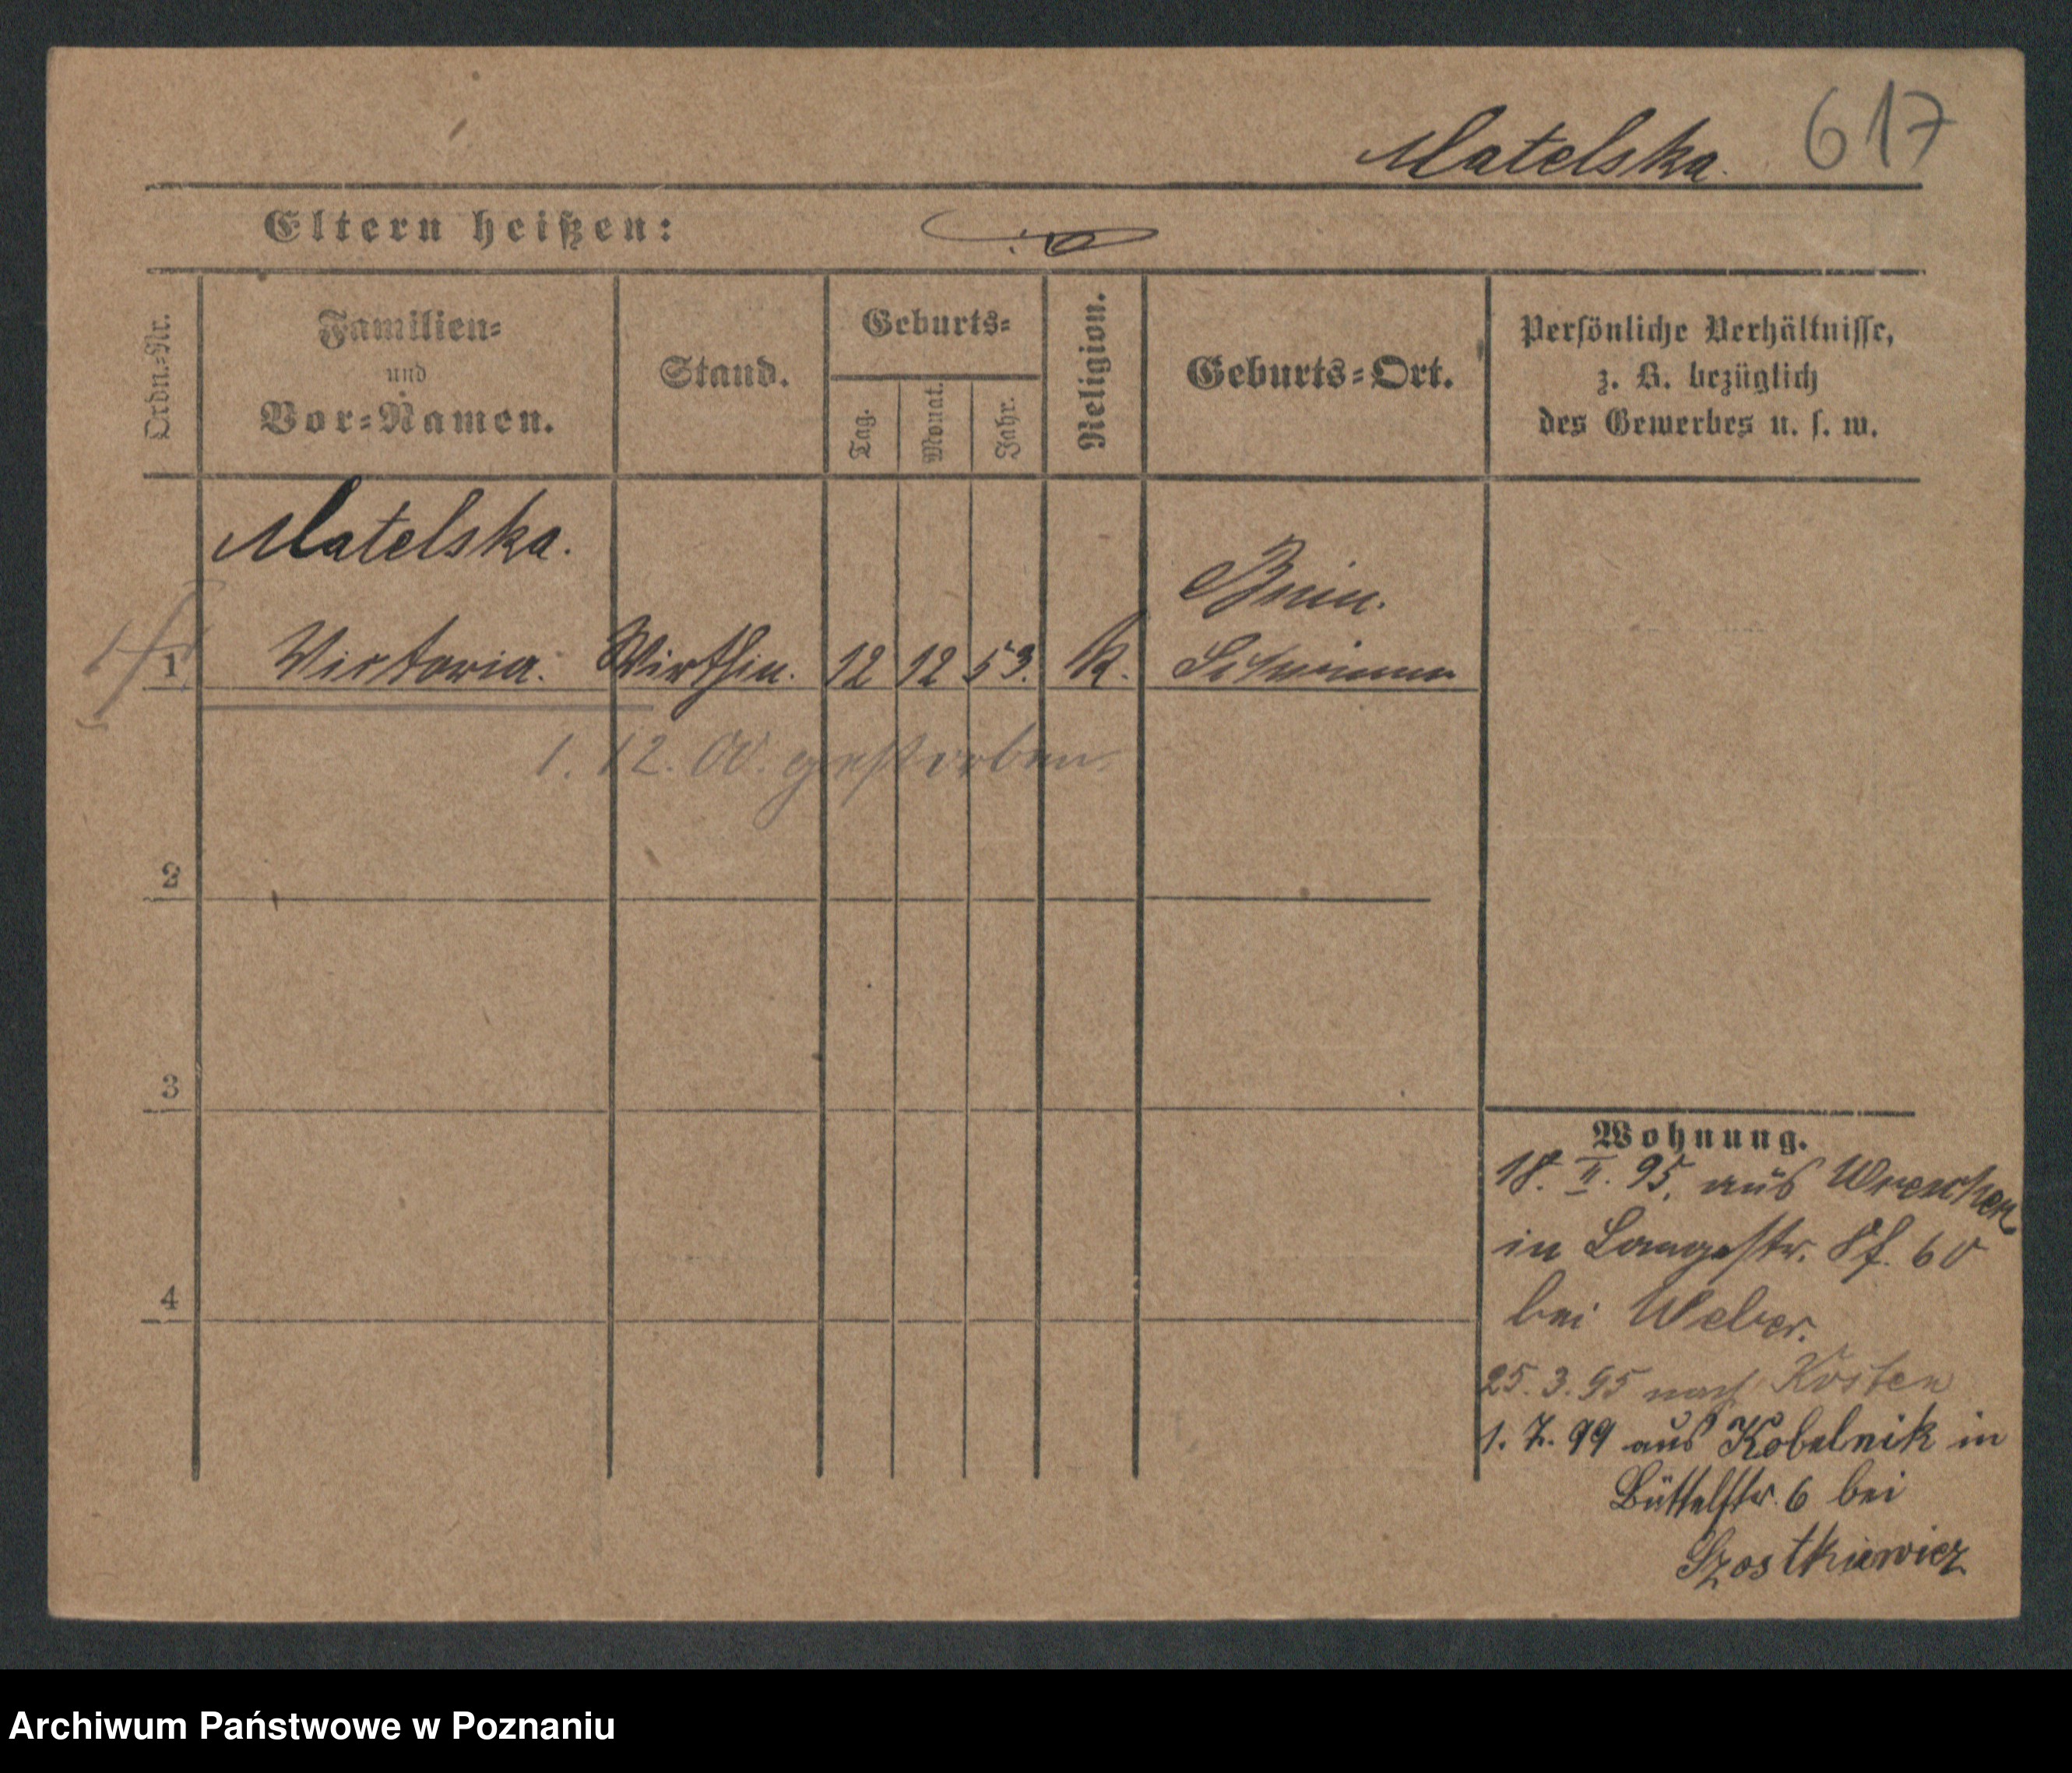 Matelska. 617
Eltern heißen:
Ordn.-Nr.
Familien-
und
Vor-Namen.
Stand.
Geburts-
Tag.
Monat.
Jahr.
Religion.
Geburts-Ort.
Persönliche Verhältnisse,
z. B. bezüglich
des Gewerbes u. s. w.
Matelska.
Bnin.
1 Victoria. Wirthin. 12 12 53. k.
1. 12. 00. gestorben.
2
3
4
Wohnung.
18. II. 95. aus
in Langestr. 8f. 60
bei Weber.
25. 3. 95 nach Kosten
1. 7. 99 aus Kobelnik in
Büttelstr. 6 bei
Szostkiewicz
Archiwum Państwowe w Poznaniu